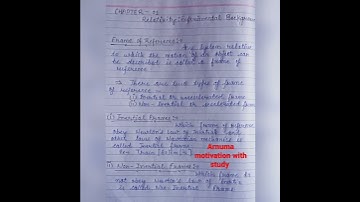 CHAPTER - 12
Relativity: Experimental Background
Frame of Reference :-
The System relative
to which the motion of an object can
be described is called a frame of
reference
→ There are two types of frame
of reference
(i) Inertial or unaccelerated frame
(ii) Non-Inertial or accelerated frame
(i) Inertial Frame :-
which frame of reference
obey Newton's law of Inertia and
other laws of Newtonian mechanics is
called Inertial frame.
Amuma
motivation with
study
(ii) Non-Inertial Frame :-
which frame do
not obey Newton's law of Inertia
is called Non-Inertial frame